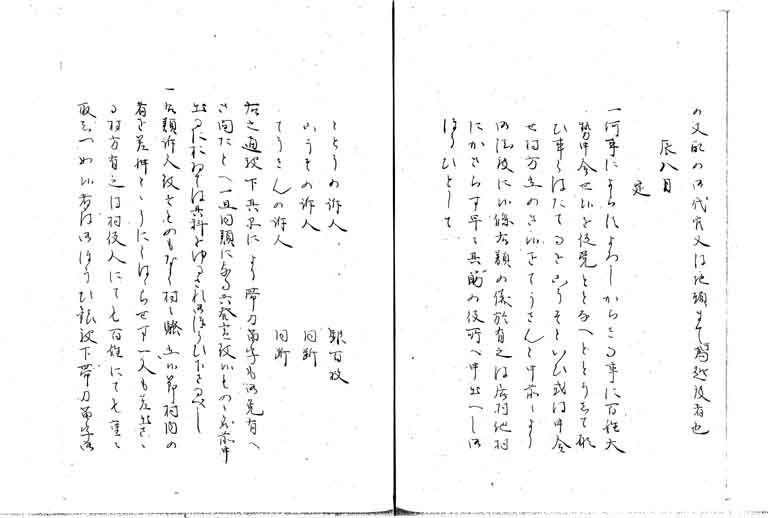 の支配の御代官又は地頭まて罷越没有也
辰八月
定
一何事によらすよろしからさる事に百姓大
勢申合せ候を徒党ととなへととうして願
ひ事くはたてるをこうそといひ或は申合
せ村方立のき候をてうさんと申前々より
御法度に候条右類の儀於有之は居村他村
にかきらす早々其筋の役所へ申出へし御
ほうひとして
ととうの訴人 銀百枚
こうその訴人 同断
てうさんの訴人 同断
右之通被下其品により帯刀苗字も御免有へ
き間たとへ一旦同類になるとも発言致候ものゝ名前申
出るにおゐては其科をゆるされ御ほうひ下さるへし
一右類訴人致すものもなく村々騒立候節村内の
者を差押ととうにくはゝらせす一人も差出さゝ
る村方有之は村役人にても百姓にても重に
取しつめ候者は御ほうひ銀被下帯刀苗字御